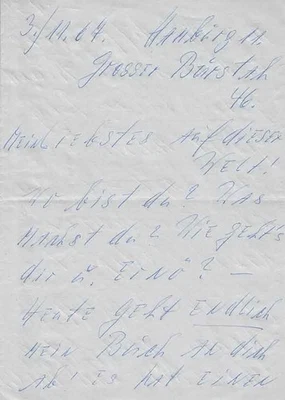 3./11.64. Hamburg 11.
Grosser Burstah
46.
Mein Liebstes auf dieser
Welt!
Wo bist du? Was
machst du? Wie geht's
dir u. Ernö? —
Heute geht endlich
mein Buch an dich
ab! Es hat einen